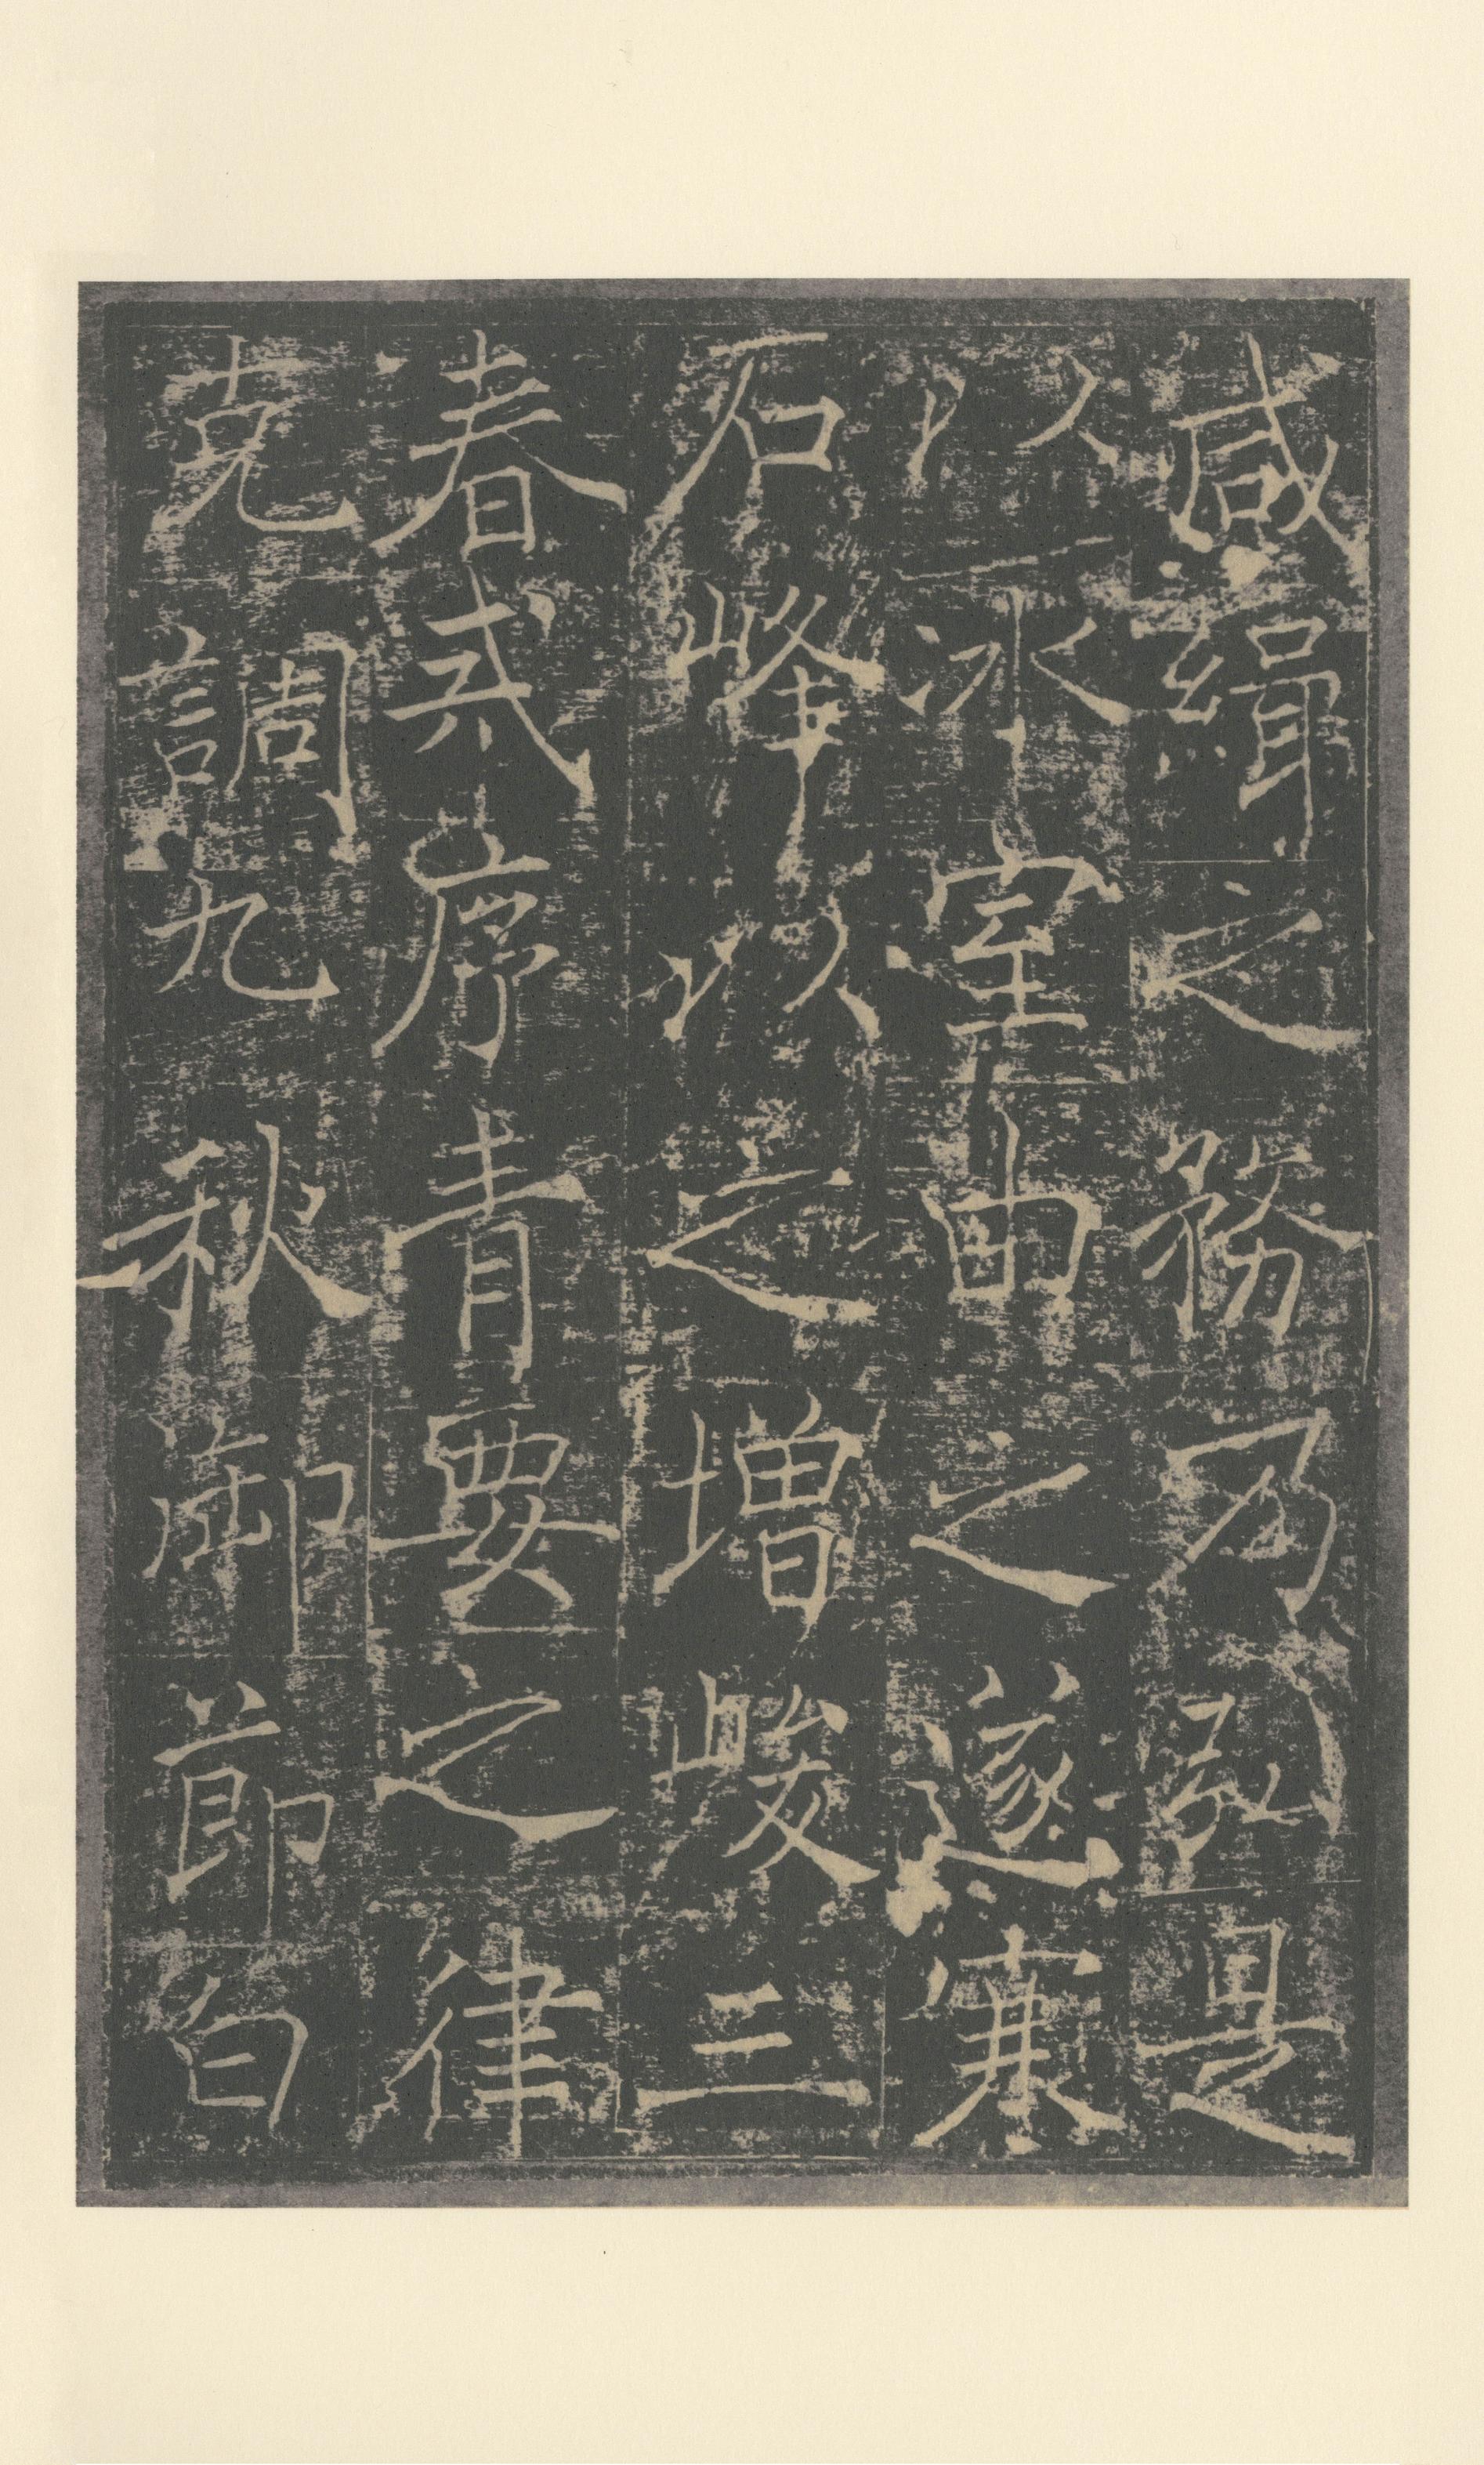 咸緝之務乃弘是
以冰室由之遂寒
石峰以之增峻三
春式序青要之律
克調九秋御節白